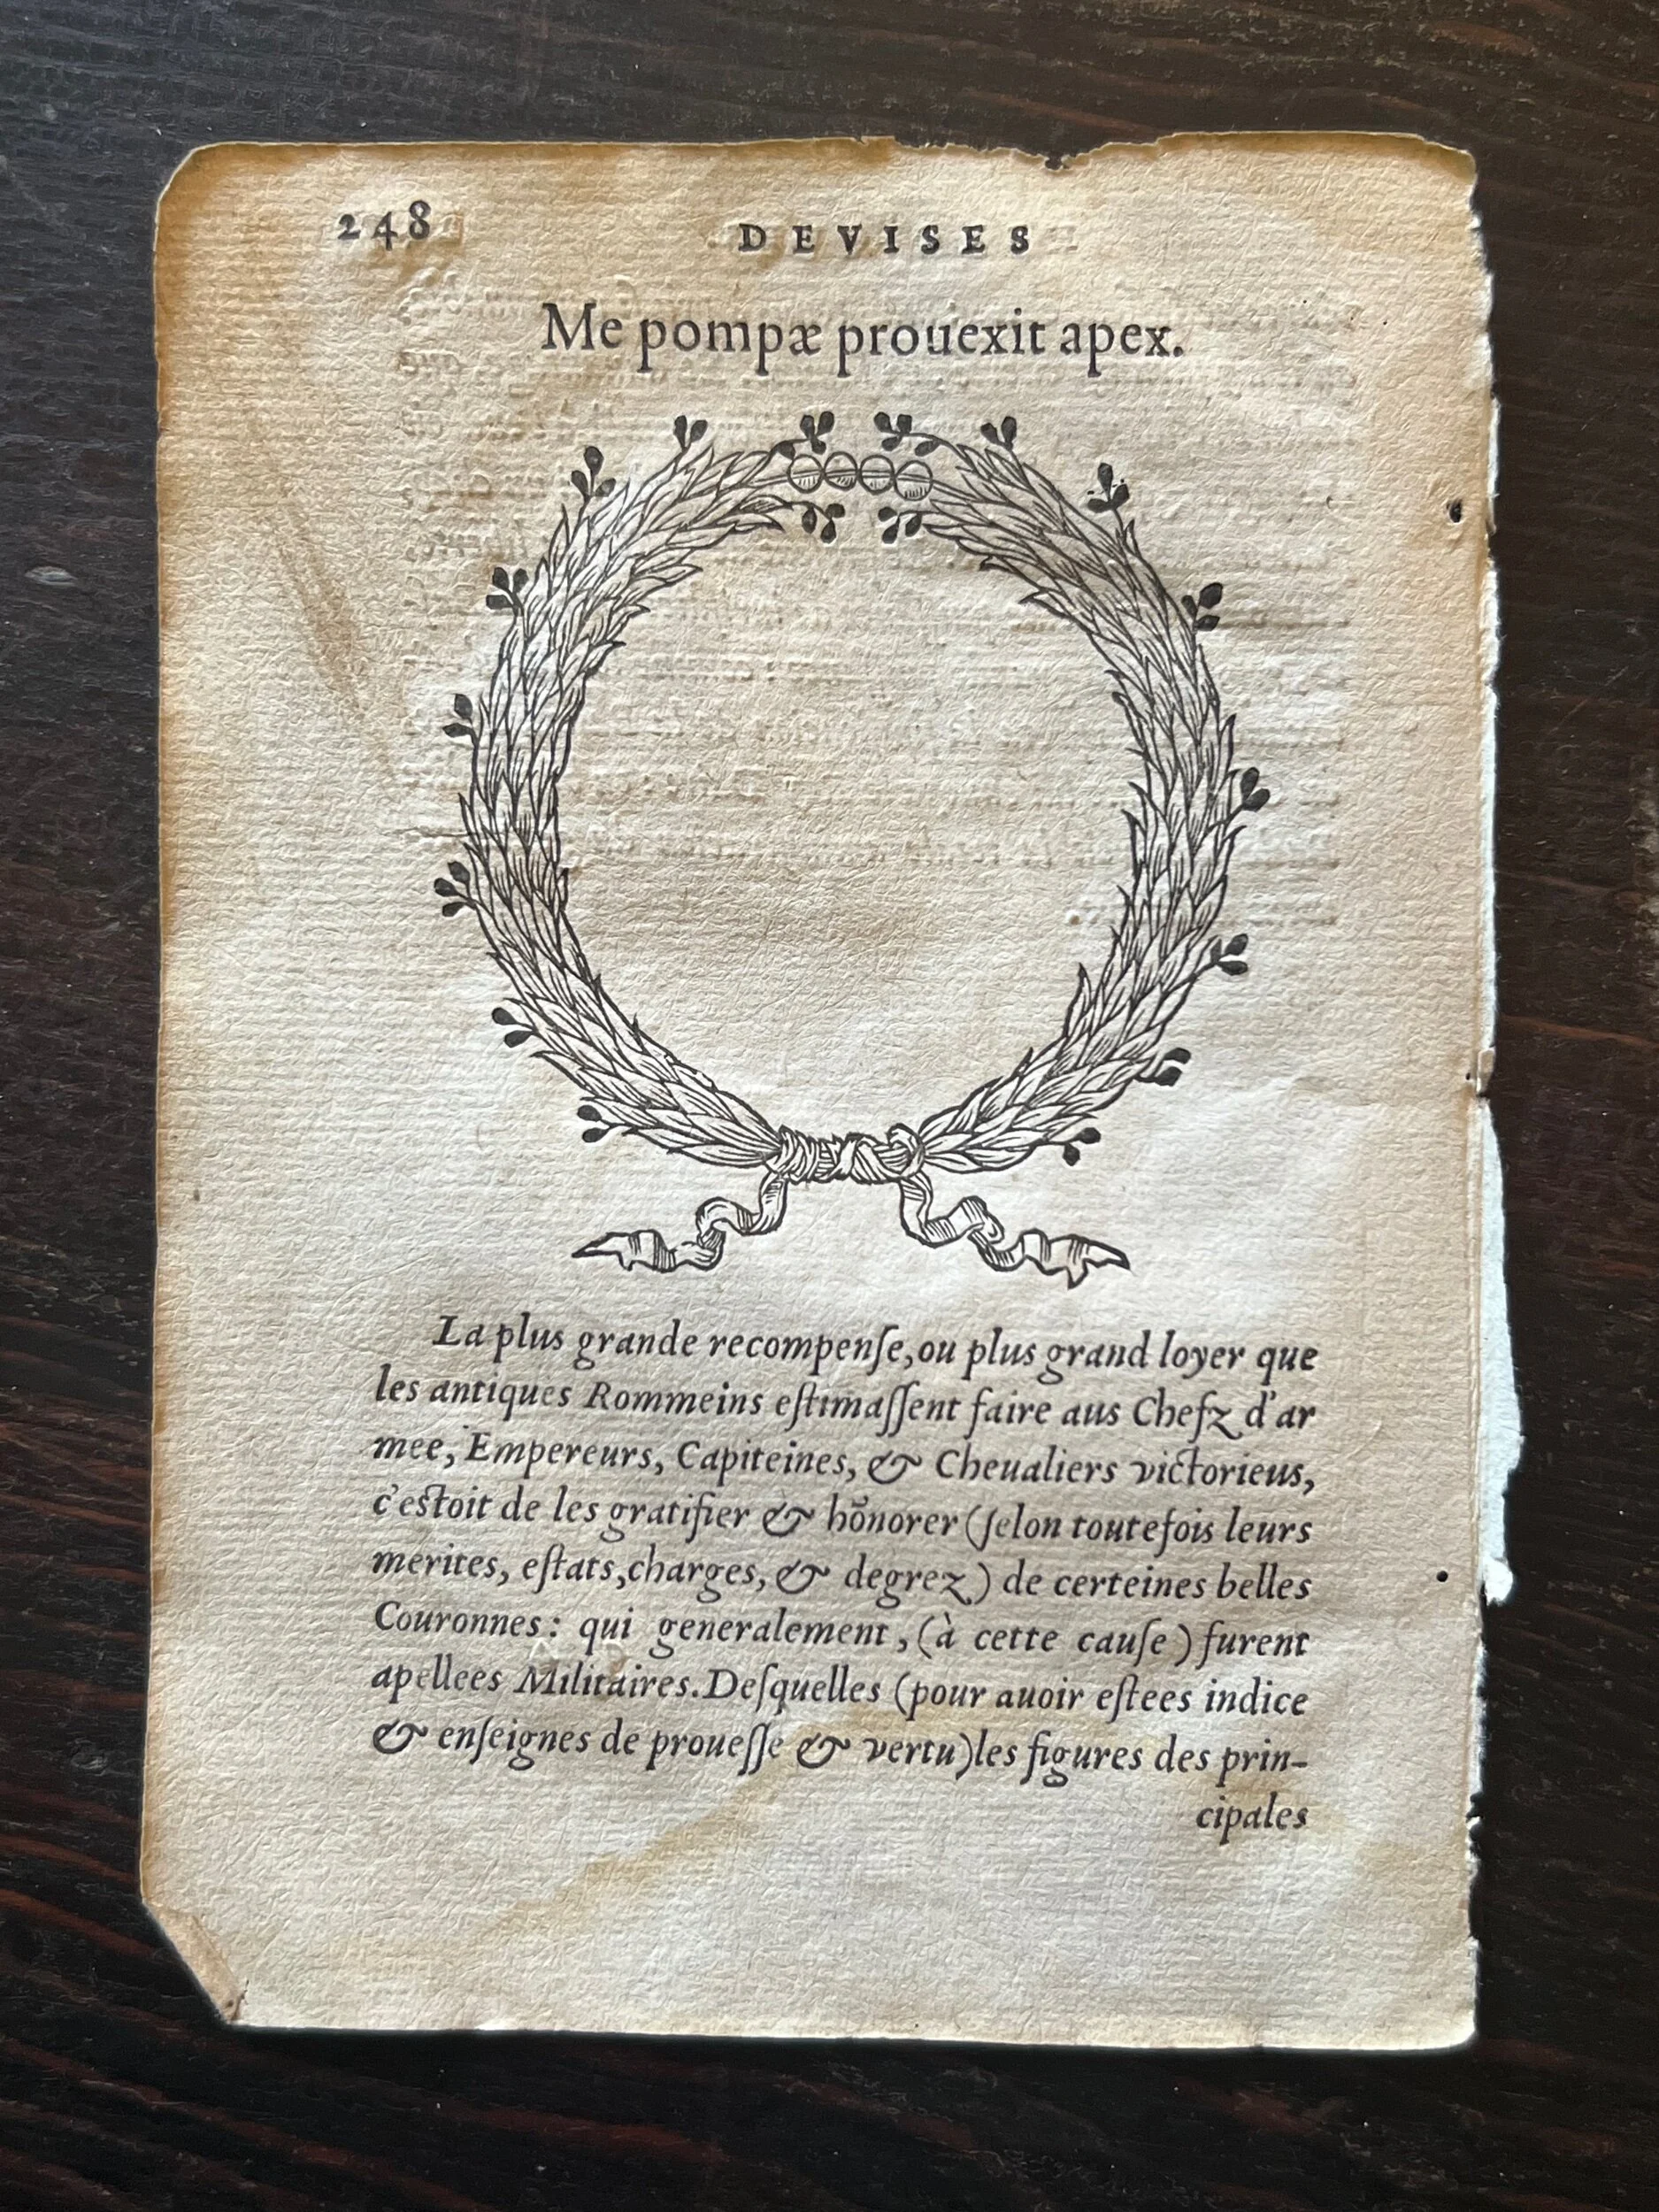 248 DEVISES
Me pompæ prouexit apex.
La plus grande recompenſe, ou plus grand loyer que
les antiques Rommeins eſtimaſſent faire aus Chefz d'ar
mee, Empereurs, Capiteines, & Cheualiers victorieus,
c'eſtoit de les gratifier & hõnorer (ſelon toutefois leurs
merites, eſtats, charges, & degrez) de certeines belles
Couronnes: qui generalement, (à cette cauſe) furent
apellees Militaires. Deſquelles (pour auoir eſtees indice
& enſeignes de proueſſe & vertu) les figures des prin-
cipales